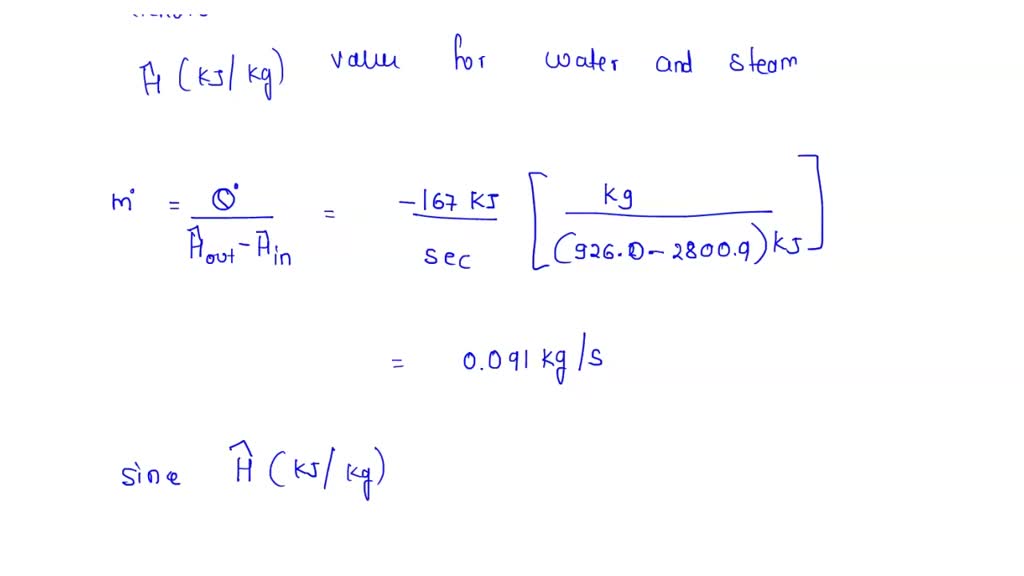 Ĥ (KJ/kg) value for water and steam
ṁ = Q̇ / (Ĥout - Ĥin) = -167 KJ / sec [ kg / (926.0 - 2800.9) KJ ]
= 0.091 kg/s
sine Ĥ (KJ/kg)